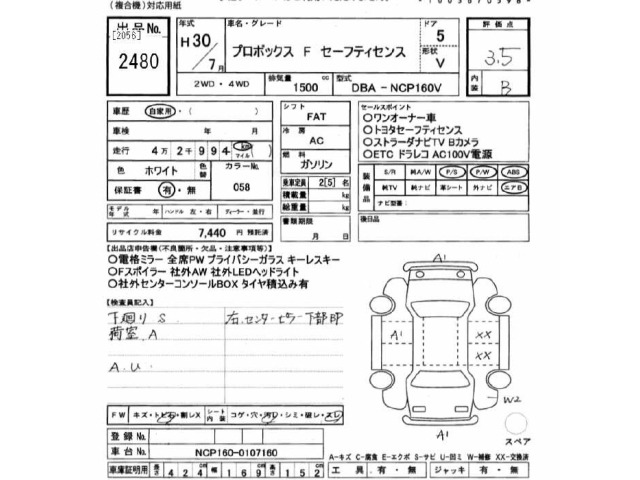 (複合機)対応用紙
出品No.
[2056]
2480
年式
H30/7月
車名・グレード
プロボックス F セーフティセンス
ドア
5
形状
V
評価点
3.5
内装
B
2WD・4WD
排気量
1500 cc
型式
DBA - NCP160V
車歴
自家用・( )
車検 年 月
走行 4万 2千 994 km マイル
色 ホワイト
色替
カラーNo.
058
保証書 有・無
モデル年式 年 ハンドル 左・右 ディーラー・並行
リサイクル料金 7,440 円 預託済
シフト
FAT
冷房
AC
燃料
ガソリン
乗車定員 2[5] 名
積載量 kg
総重量 kg
書類期限
月 日
セールスポイント
〇ワンオーナー車
〇トヨタセーフティセンス
〇ストラーダナビTV Bカメラ
〇ETC ドラレコ AC100V電源
装備品
S/R 純A/W P/S P/W ABS
純TV 純ナビ 革シート 外ナビ エアB
ナビ型番:
後日品
【出品店申告欄(不良箇所・欠品・注意事項等)】
〇電格ミラー 全席PW プライバシーガラス キーレスキー
〇Fスポイラー 社外AW 社外LEDヘッドライト
〇社外センターコンソールBOX タイヤ積込み有
【検査員記入】
下廻り S
荷室 A
A.U
右.センターピラー下部凹
FW キズ・トビ石・割レX
シート内装 コゲ・穴・汚レ・シミ・破レ・スレ
登録No.
車台No.
NCP160-0107160
車庫証明用 長さ 424 cm 幅 169 cm 高さ 152 cm
A1
A1
XX
XX
W2
A1
スペア
A-キズ C-腐食 E-エクボ S-サビ U-凹ミ W-補修 XX-交換済
工具 有・無 ジャッキ 有・無